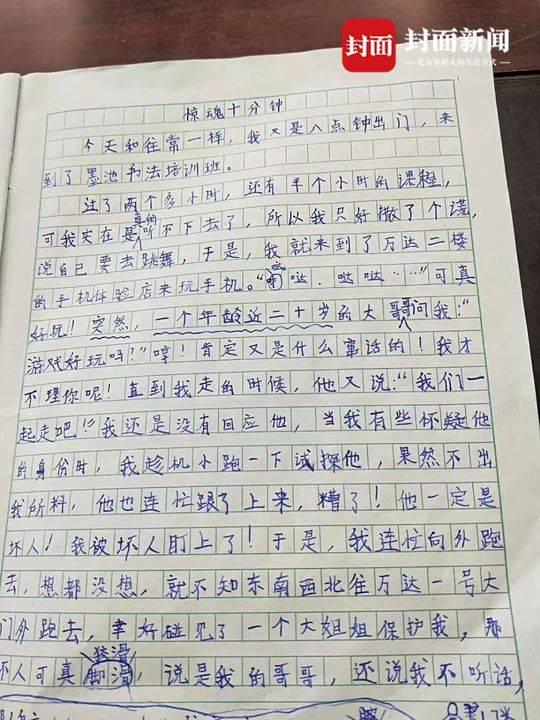 封面 封面新闻
亿万年轻人的生活方式
惊魂十分钟
今天和往常一样，我又是八点钟出门，来
到了墨池书法培训班。
过了两个多小时，还有半个小时的课程，
真的
可我实在是听不下去了，所以我只好撒了个谎，
说自己要去跳舞，于是，我就来到了万达二楼
的手机体验店来玩手机。“哒哒，哒哒……”可真
好玩！突然，一个年龄近二十岁的大哥哥问我：“
游戏好玩吗？”哼！肯定又是什么童话的！我才
不理你呢！直到我走的时候，他又说：“我们一
起走吧！”我还是没有回应他，当我有些怀疑他
的身份时，我趁机小跑一下试探他，果然不出
我所料，他也连忙跟了上来，糟了！他一定是
坏人！我被坏人盯上了！于是，我连忙向外跑
去，想都没想，就不知东南西北往万达一号大
门外跑去，幸好碰见了一个大姐姐保护我，那
狡猾
坏人可真，说是我的哥哥，还说我不听话，